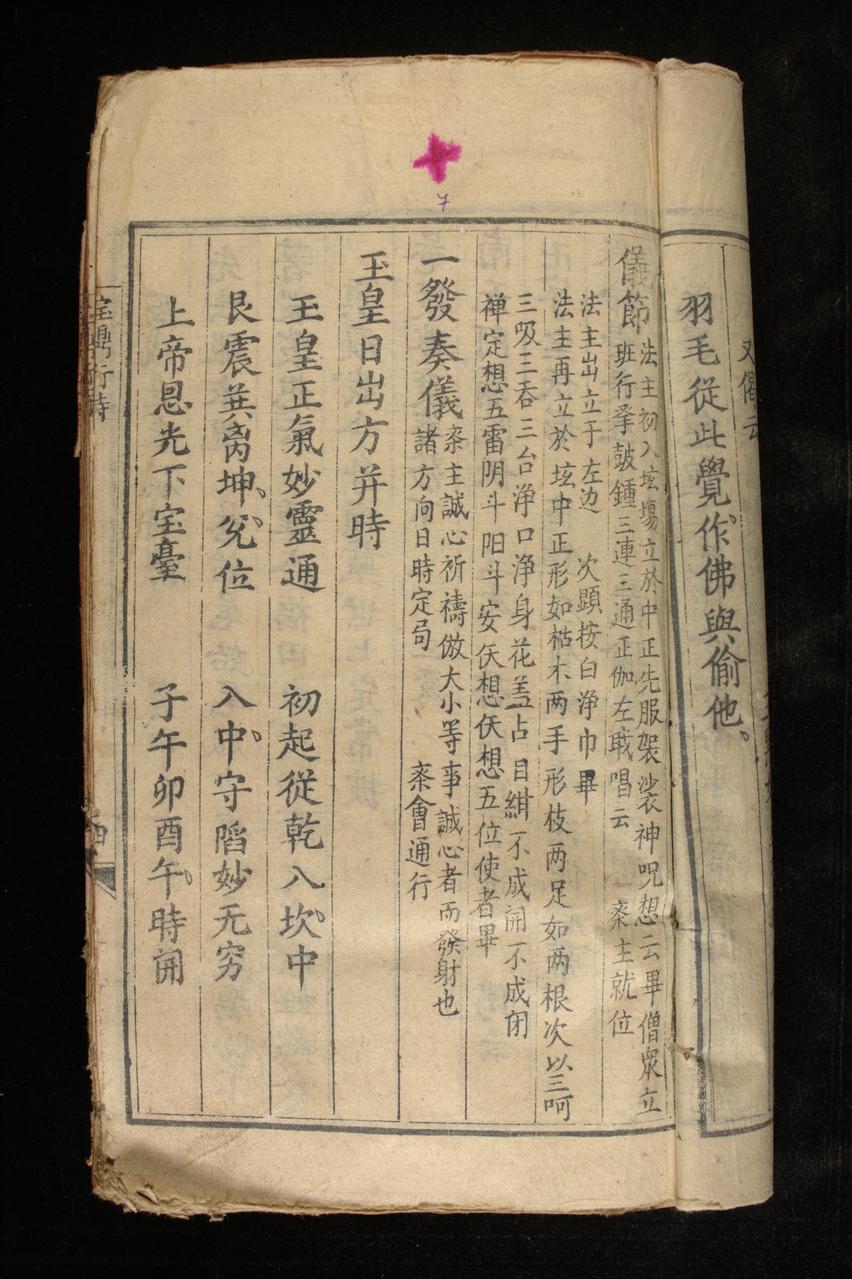 又偈云
羽毛從此覺作佛與偷他
7
儀節
法主初入坛場立於中正先服袈裟神呪想云畢僧眾立
班行孥皷鍾三連三通正伽左戢唱云 一斋主就位
法主出立于左边 次顕按白淨巾畢
法主再立於坛中正形如枯木两手形枝两足如两根次以三呵
三吸三吞三台淨口淨身花盖占目紺不成開不成闭
禅定想五雷阴斗阳斗安仸想仸想五位使者畢
一發奏儀
斋主誠心祈禱倣大小等事誠心者而發財也
諸方向日時定局 斋會通行
玉皇日出方并時
玉皇正氣妙靈通 初起從乾入坎中
艮震巽离坤兊位 入中守㨵妙无穷
上帝恩光下宝臺 子午卯酉午時開
宝鼎行時
四